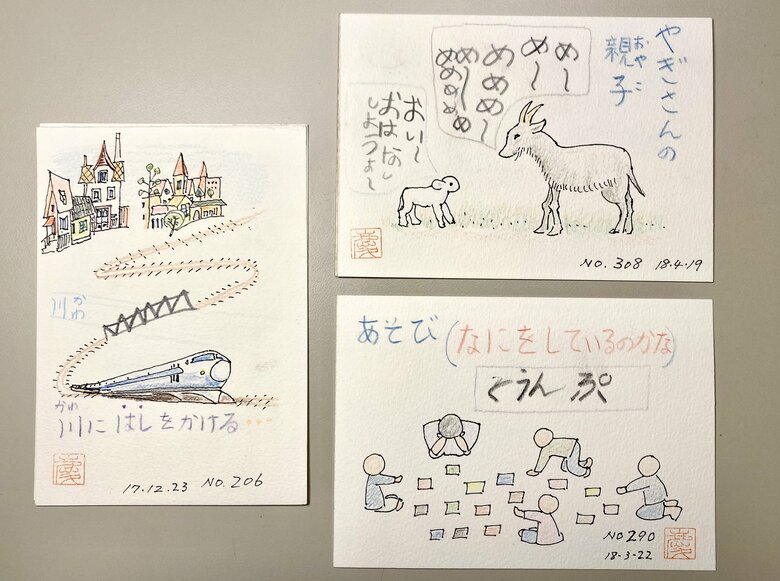 川
かわ
かわ
川に はしをかける・・・
17.12.23 NO.206
やぎさんの
親子
おやこ
め〜
め〜
めめめ〜
おい〜
おはなし
しようよぉ〜
NO.308 18.4.19
あそび(なにをしているのかな)
とらんぷ
NO290
18-3-22